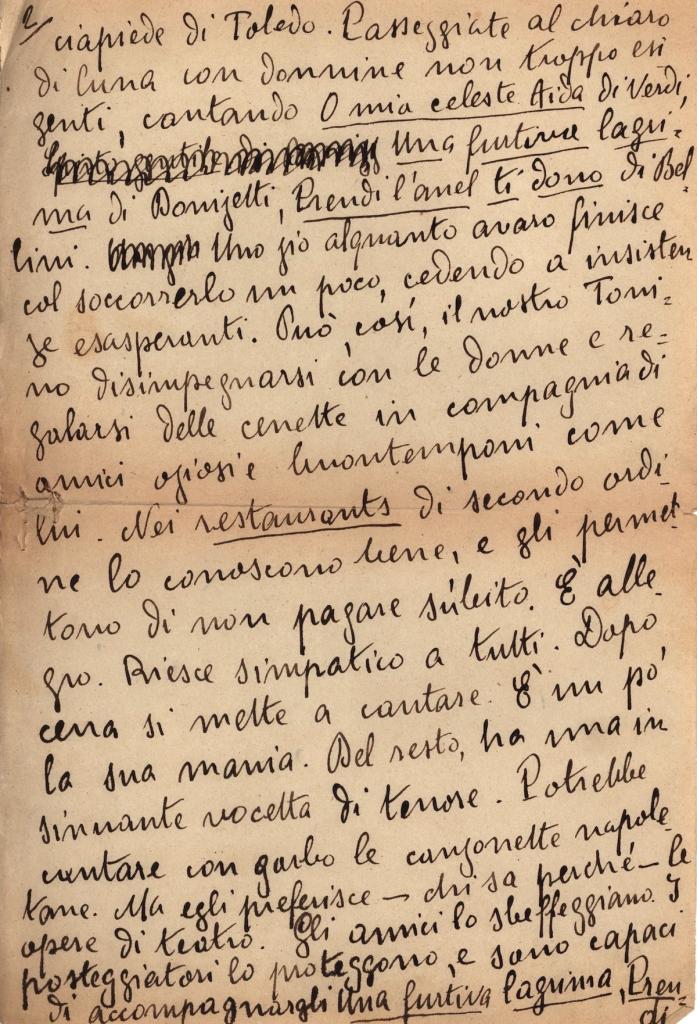 2/
ciapiede di Toledo. Passeggiate al chiaro
di luna con donnine non troppo esi
genti, cantando O mia celeste Aida di Verdi,
Una furtiva lagri-
ma di Donizetti, Prendi l'anel ti dono di Bel
lini. Uno zio alquanto avaro finisce
col soccorrerlo un poco, cedendo a insisten
ze esasperanti. Può, così, il nostro Toni=
no disimpegnarsi con le donne e re=
galarsi delle cenette in compagnia di
amici oziosi e buontemponi come
lui. Nei restaurants di secondo ordi-
ne lo conoscono bene, e gli permet-
tono di non pagare súbito. È alle
gro. Riesce simpatico a tutti. Dopo
cena si mette a cantare. È un po'
la sua mania. Del resto, ha una in
sinuante vocetta di tenore. Potrebbe
cantare con garbo le canzonette napole
tane. Ma egli preferisce — chi sa perché — le
opere di teatro. Gli amici lo sbeffeggiano. I
posteggiatori lo proteggono, e sono capaci
di accompagnargli Una furtiva lagrima, Pren-
di